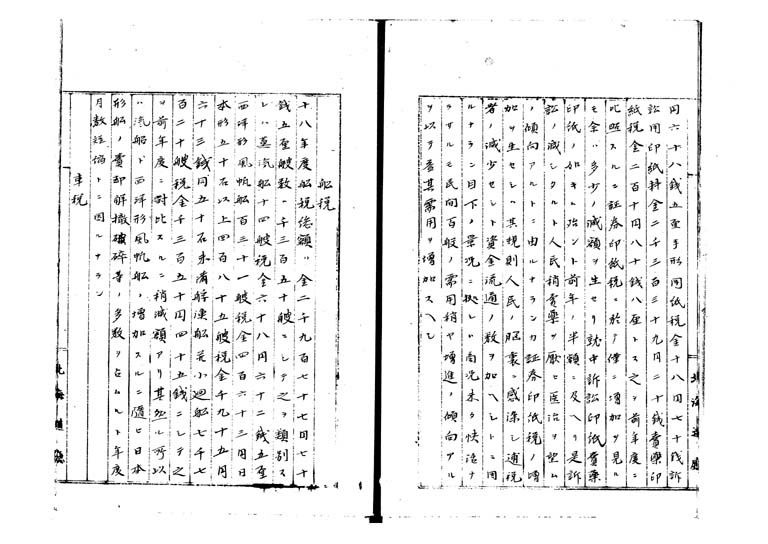 円六十八銭五厘手形用紙税金十八円七十銭訴
訟用印紙料金二千三百三十九円二十銭売薬印
紙税金二百十円八十銭八厘トス之ヲ前年度ニ
比照スルニ証券印紙税ニ於テ僅ニ増加ヲ見ル
モ全ハ多少ノ減額ヲ生セリ就中訴訟印紙売薬
印紙ノ如キハ殆ント前年ノ半額ニ及ヘリ是訴
訟ノ減シタルト人民稍売薬ヲ厭ヒ医治ヲ望ム
ノ傾向アルトニ由ルナランカ証券印紙税ノ増
加ヲ生セシハ其規則人民ノ脳裏ニ感染シ逋税
者ノ減少セシト資金流通ノ数ヲ加ヘシトニ因
ルナラン目下ノ景況ニ拠レハ商況未タ快活ナ
ラサルモ民間百般ノ需用稍ヤ増進ノ傾向アル
ヲ以テ番其需用ヲ増加スヘシ
北海道庁
船税
十八年度船税総額ハ金二千九百七十七円七十
銭五厘艘数一千三百五十艘ニシテ之ヲ類別ス
レハ蒸汽船十四艘税金六十八円六十二銭五厘
西洋形風帆船百三十一艘税金四百六十三円日
本形五十石以上四百八十五艘税金千九十五円
六十三銭同五十石未満艀漁船并小廻船七千七
百二十艘税金千三百五十円四十五銭ニシテ之
ヲ前年度ニ対比スルニ稍減額アリ其然ル所以
ハ汽船ト西洋形風帆船ノ増加スルニ随ヒ日本
形船ノ売却解撤破碎等ノ多数ヲセムルト年度
月数短縮トニ因ルナラン
車税
北海道庁